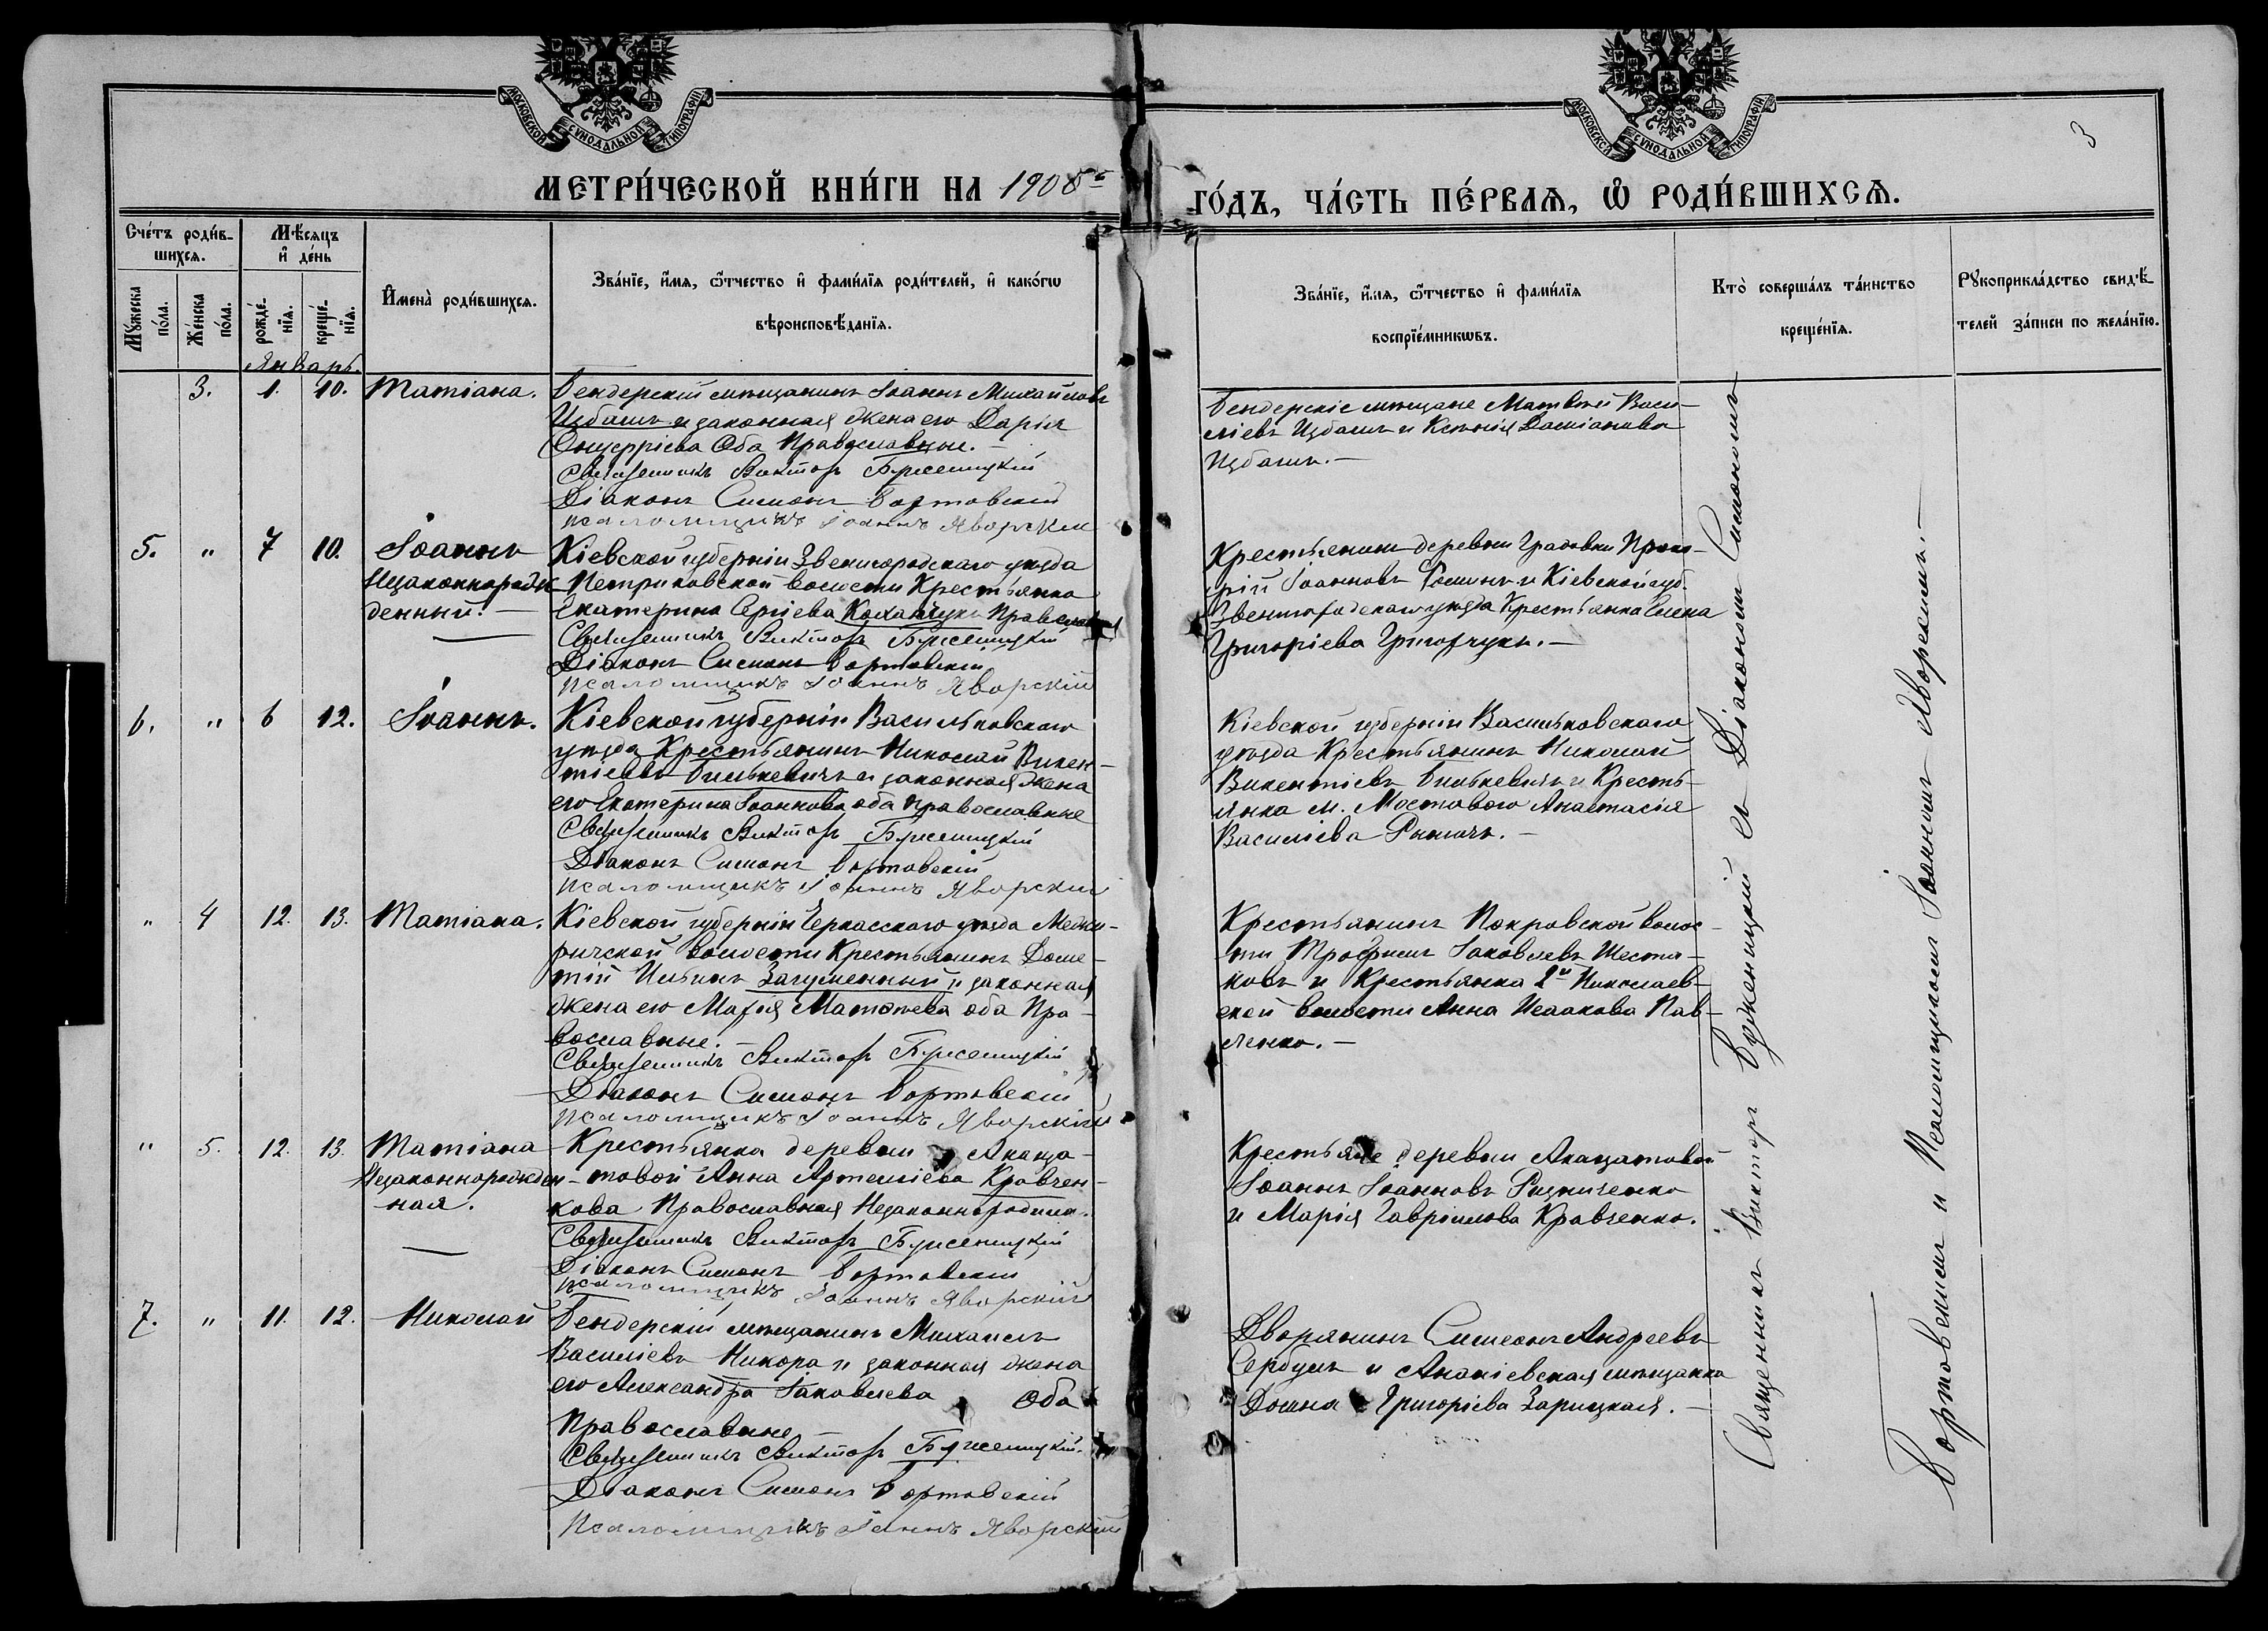 МОСКОВСКОЙ СУНОДАЛЬНОЙ ТИПОГРАФІИ
МОСКОВСКОЙ СУНОДАЛЬНОЙ ТИПОГРАФІИ
3
МЕТРИ́ЧЕСКОЙ КНИ́ГИ НА 1908
ГО́ДЪ, ЧА́СТЬ ПЕ́РВАѦ, Ѿ РОДИ́ВШИХСѦ.
Сче́тъ роди́в-
шихсѧ.
Мѣ́сѧцъ
и҆ де́нь
Мꙋ́жеска
по́ла.
Же́нска
по́ла.
рожде́-
нїѧ.
креще́-
нїѧ.
И҆мена̀ роди́вшихсѧ.
Зва́нїе, и҆́мѧ, ѻ҆́тчество и҆ фами́лїѧ роди́телей, и҆ како́гѡ
вѣроисповѣ́данїѧ.
Зва́нїе, и҆́мѧ, ѻ҆́тчество и҆ фами́лїѧ
воспрїе́мникѡвъ.
Кто̀ соверша́лъ та́инство
креще́нїѧ.
Рꙋкоприкла́дство свидѣ́-
телей за́писи по жела́нїю.
Январь.
3. 1. 10. Татіана.
Бендерскій мѣщанинъ Іоаннъ Михайловъ
Избашъ и законная жена его Дарія
Онуфріева Оба Православные.-
Священникъ Викторъ Буженицкій
Діаконъ Симонъ Бортовскій
Псаломщикъ Іоаннъ Яворскій
Бендерскіе мѣщане Матвѣй Васи-
ліевъ Избашъ и Ксенія Даміанова
Избашъ.-
5. " 7 10. Іоаннъ
Незаконнорож-
денный.-
Кіевской губерніи Звенигородскаго уѣзда
Петриковской волости Крестьянка
Екатерина Сергіева Коханчукъ Православная
Священникъ Викторъ Буженицкій
Діаконъ Симонъ Бортовскій
Псаломщикъ Іоаннъ Яворскій
Крестьянинъ деревни Градовки
Іоанновъ и Кіевской губ.
Звенигородскаго уѣзда Крестьянка Елена
Григоріева Григорчукъ.-
6. " 6 12. Іоаннъ.
Кіевской губерніи Васильковскаго
уѣзда Крестьянинъ Николай Викен-
тіевъ Билькевичъ и законная жена
его Екатерина Іоаннова оба Православные
Священникъ Викторъ Буженицкій
Діаконъ Симонъ Бортовскій
Псаломщикъ Іоаннъ Яворскій
Кіевской губерніи Васильковскаго
уѣзда Крестьянинъ Николай
Викентіевъ Билькевичъ и Кресть-
янка м. Мостового Анастасія
Василіева
" 4 12. 13. Татіана.
Кіевской губерніи Черкасскаго уѣзда Межи-
ричской волости Крестьянинъ Доме-
тій Ильинъ Загуменный и законная
жена его Марія Матѳеева оба Пра-
вославные.-
Священникъ Викторъ Буженицкій
Діаконъ Симонъ Бортовскій
Псаломщикъ Іоаннъ Яворскій
Крестьянинъ Покровской волос-
ти Трофимъ Іаковлевъ Шеста-
ковъ и Крестьянка 2й Николаев-
ской волости Анна Исаакова Пав-
ленко.-
" 5. 12. 13. Татіана
Незаконнорожден-
ная.
Крестьянка деревни Акаца-
товой Анна Артеміева Кравчен-
кова Православная Незаконнородила.
Священникъ Викторъ Буженицкій
Діаконъ Симонъ Бортовскій
Псаломщикъ Іоаннъ Яворскій
Крестьяне деревни Акацатовой
Іоаннъ Іоанновъ Ризниченко
и Марія Гавріилова Кравченко.
7. " 11. 12. Николай
Бендерскій мѣщанинъ Михаилъ
Василіевъ Никора и законная жена
его Александра Іаковлева Оба
Православные-
Священникъ Викторъ Буженицкій.
Діаконъ Симонъ Бортовскій
Псаломщикъ Іоаннъ Яворскій
Дворянинъ Симеонъ Андреевъ
Сербулъ и Ананіевская мѣщанка
Домна Григоріева Зарицкая.-
Священникъ Викторъ Буженицкій съ Діакономъ Симономъ
Бортовскимъ и Псаломщикомъ Іоанномъ Яворскимъ.-